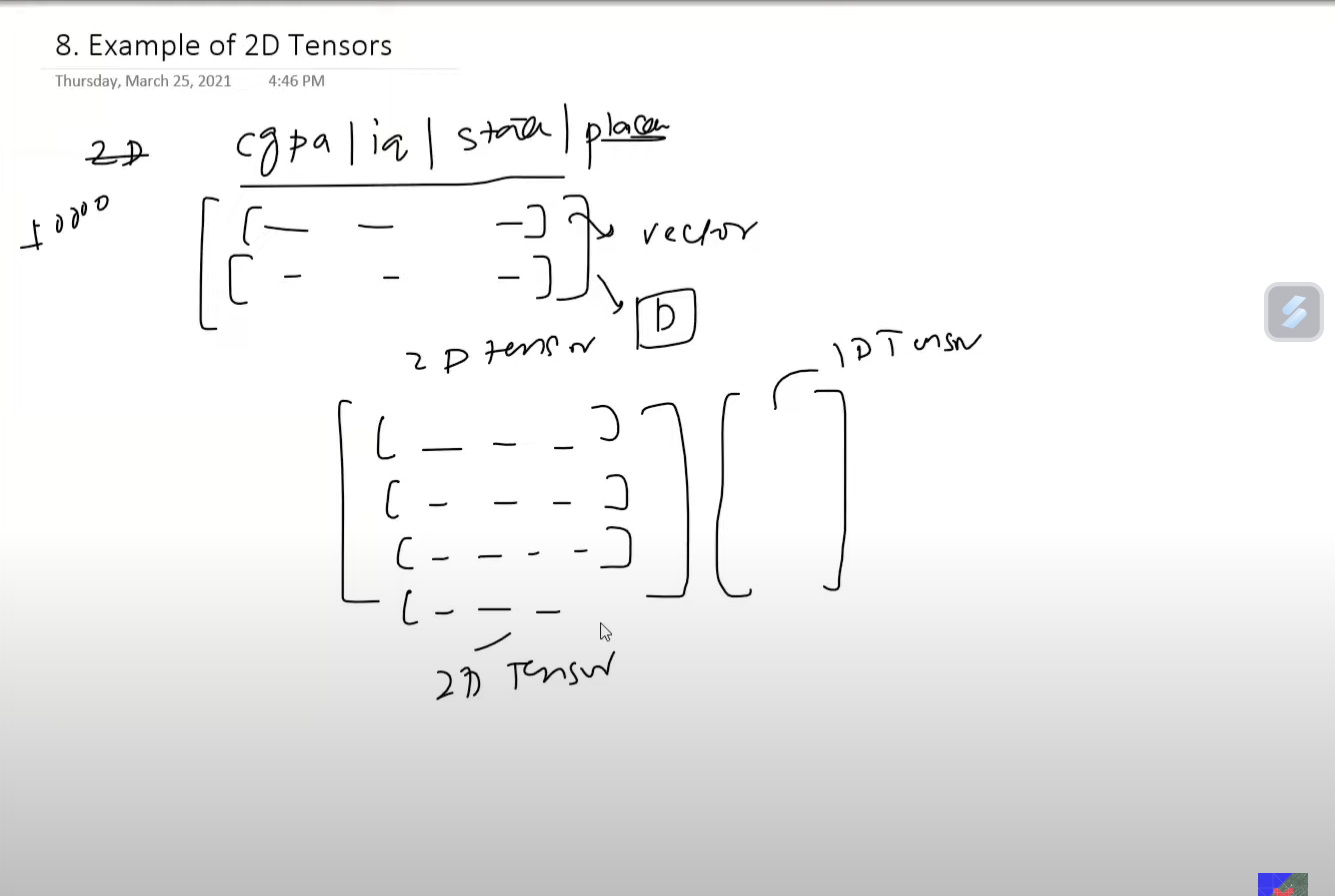 8. Example of 2D Tensors
Thursday, March 25, 2021 4:46 PM
2D cgpa | iq | state | placem
10000
vector
D
2D tensor
1D Tensor
2D Tensor